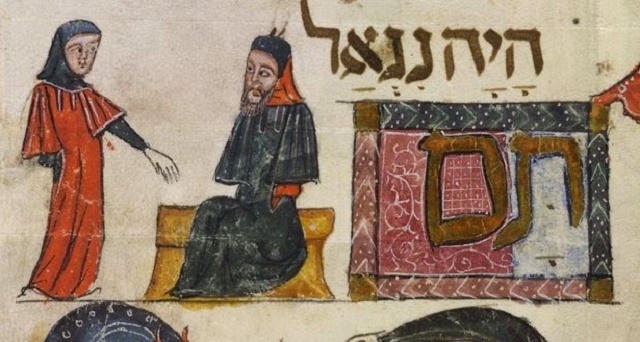 הָיָה נִגְאַל
תם